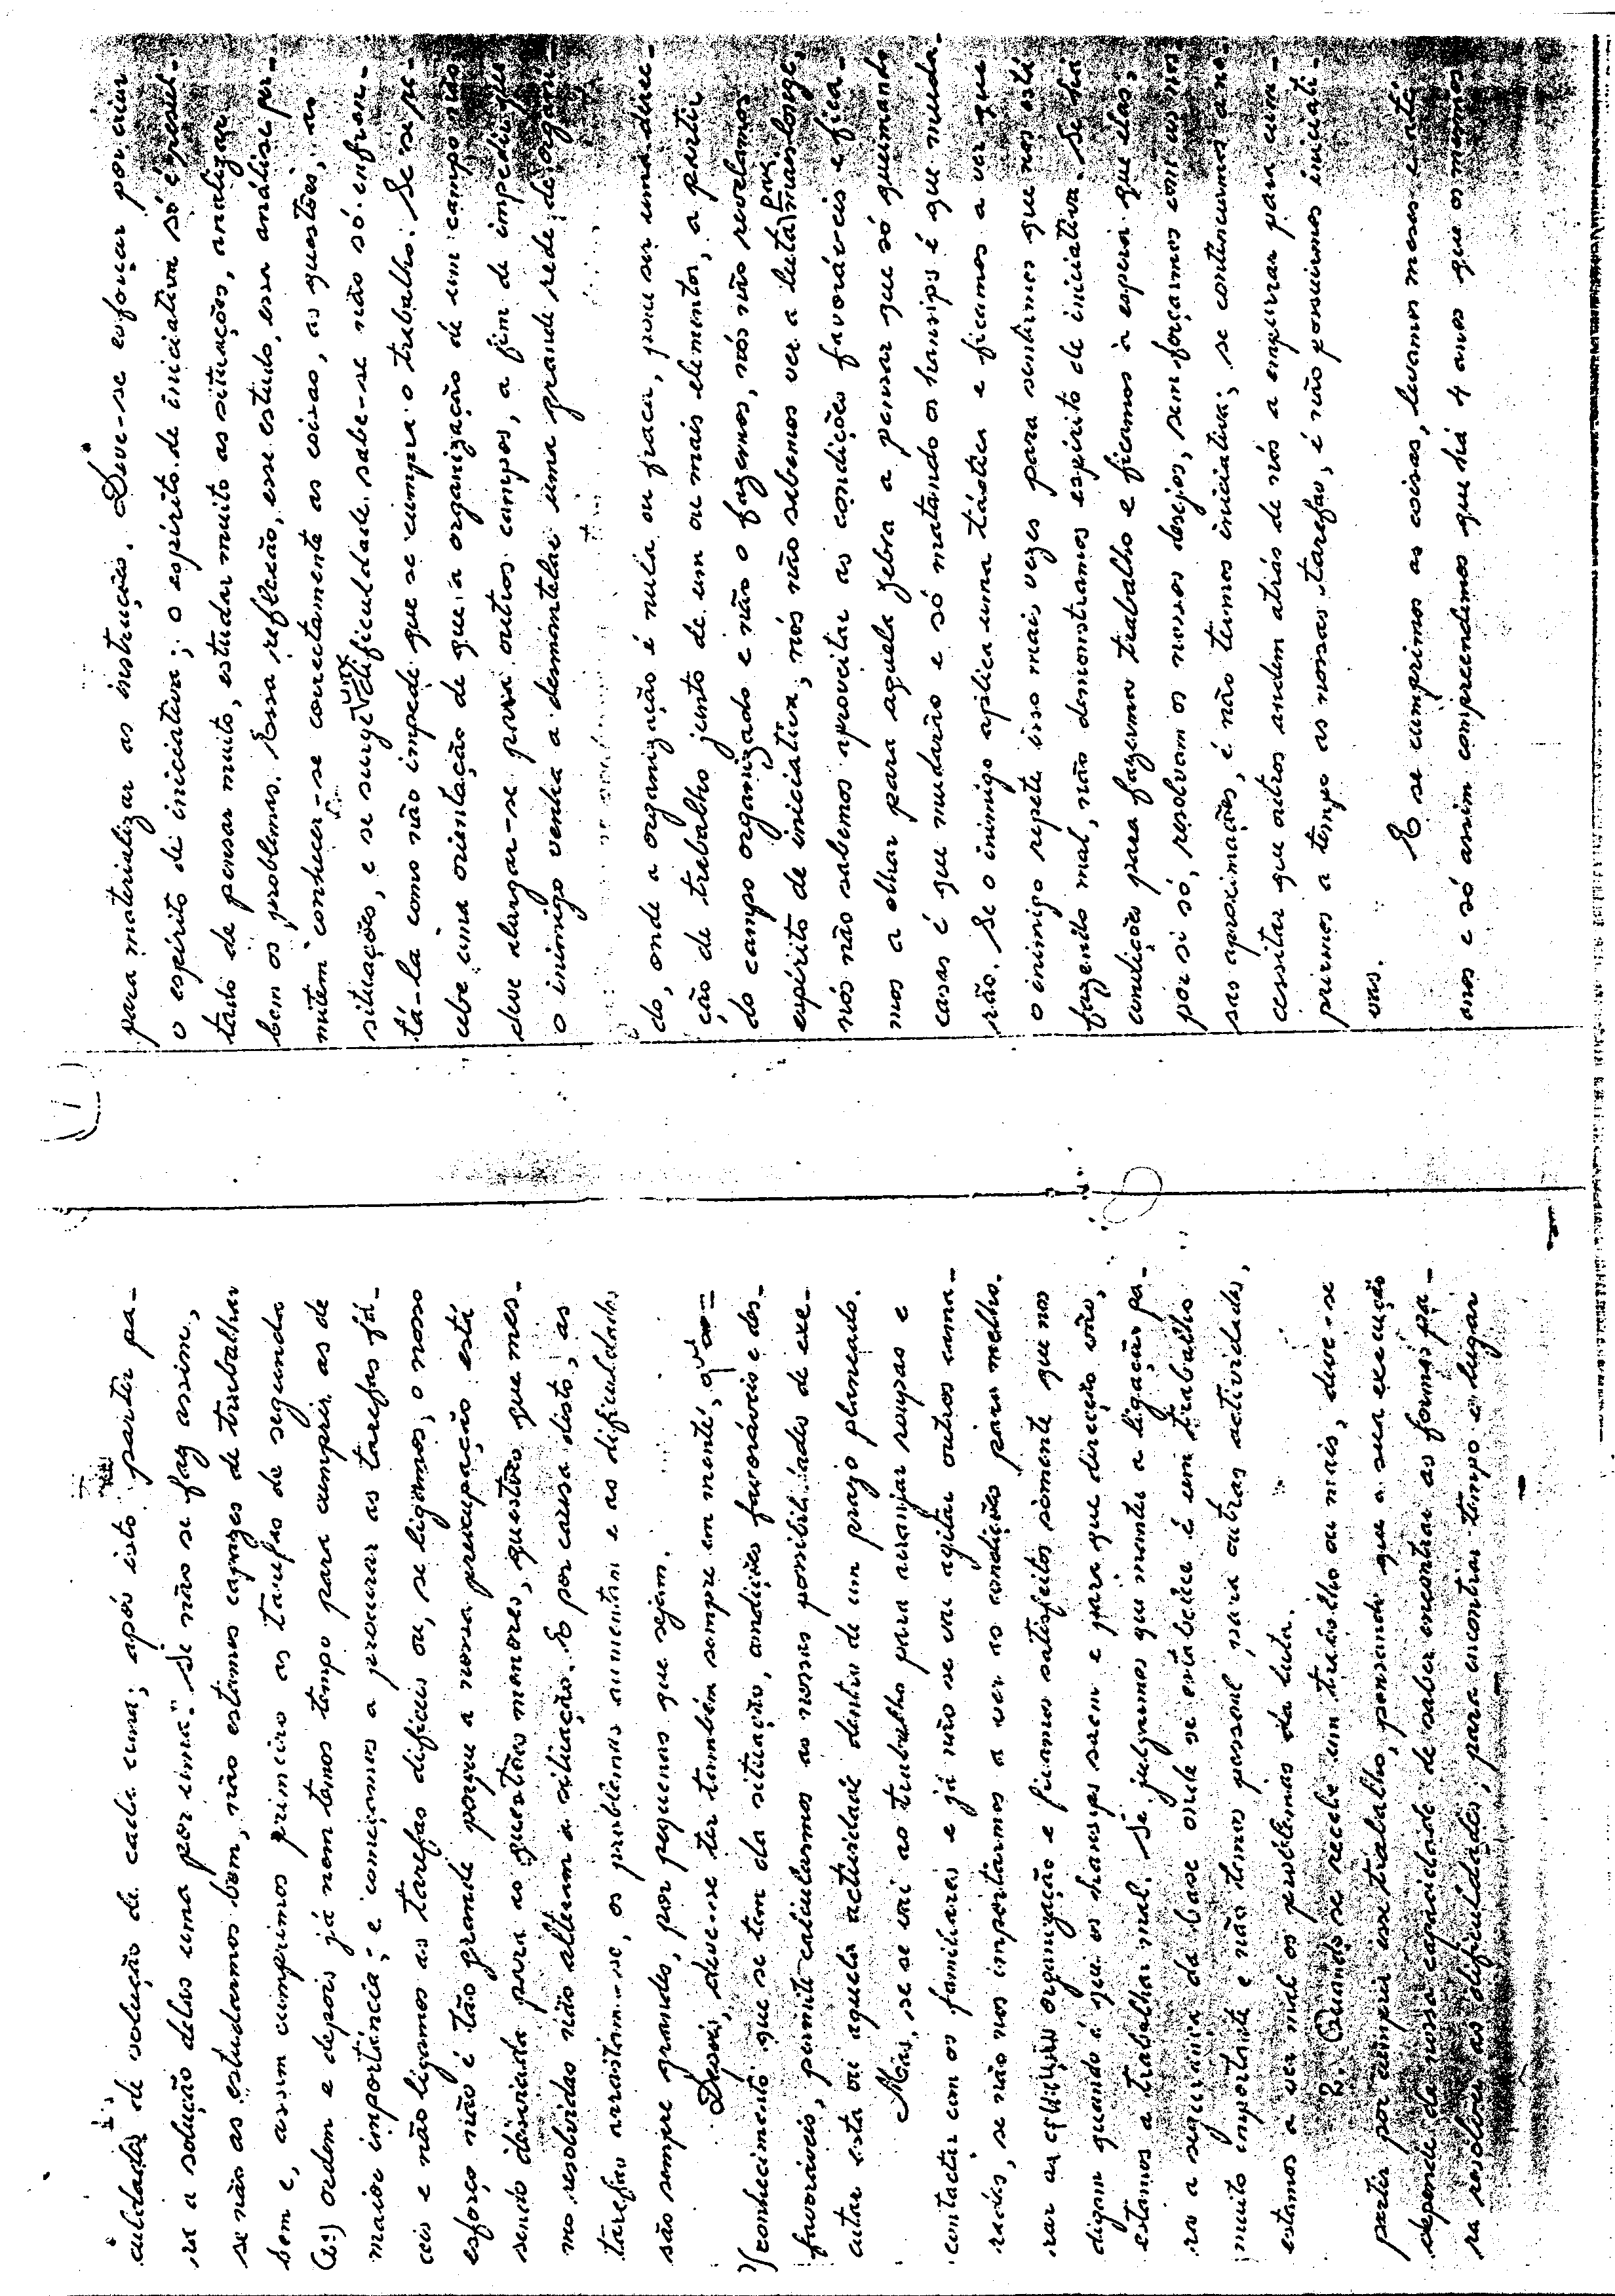 culdades de solução de cada uma; após isto partir pa-
ra a solução delas uma por uma". Se não se faz assim,
se não as estudamos bem, não estamos capazes de trabalhar
bem e, assim cumprimos primeiro as tarefas de segunda
(2ª) ordem e depois já nem temos tempo para cumprir as de
maior importância; e começamos a procurar as tarefas fá-
ceis e não ligamos as tarefas difíceis ou, se ligamos, o nosso
esforço não é tão grande porque a nossa preocupação está
sendo desviada para as questões menores, questões que mes-
mo resolvidas não alteram a situação. E por causa disto, as
tarefas arrastam-se, os problemas aumentam e as dificuldades
são sempre grandes, por pequenas que sejam.
Depois, deve-se ter também sempre em mente, que o
conhecimento que se tem da situação, condições favoráveis e des-
favoráveis, permite calcularmos as nossas possibilidades de exe-
cutar esta ou aquela actividade dentro de um prazo planeado.
Mas, se se vai ao trabalho para arranjar roupas e
contactar com os familiares e já não se vai agitar outros cama-
radas, se não nos importarmos a ver as condições para melho-
rar as organização e ficamos satisfeitos somente que nos
digam quando é que os hansips saem e para que direcção vão,
estamos a trabalhar mal. Se julgamos que manter a ligação pa-
ra a segurança da base onde se estabelece é um trabalho
muito importante e não damos pessoal para outras actividades,
estamos a ver mal os problemas da luta.
2. Quando se recebe um trabalho ou mais, deve-se
partir por cumprir esse trabalho, pensando que a sua execução
depende da nossa capacidade de saber encontrar as formas pa-
ra resolver as dificuldades, para encontrar tempo e lugar
para materializar as instruções. Deve-se esforçar por criar
o espírito de iniciativa; o espírito de iniciativa só é resul-
tado de pensar muito, estudar muito as situações, analizar
bem os problemas. Essa reflexão, esse estudo, essa análise per-
mitem conhecer-se correctamente as coisas, as questões, as
situações, e se surge uma dificuldade sabe-se não só enfren-
tá-la como não impede que se cumpra o trabalho. Se se re-
cebe uma orientação de que a organização de um campo não
deve alargar-se para outros campos, a fim de impedir que
o inimigo venha a desmantelar uma grande rede de organi-
do, onde a organização é nula ou fraca, para ser uma direc-
ção de trabalho junto de um ou mais elementos, a partir
do campo organizado e não o fazemos, nós não revelamos
espírito de iniciativa, nós não sabemos ver a luta para mais longe,
nós não sabemos aproveitar as condições favoráveis e fica-
mos a olhar para aquela zebra a pensar que só queimando
casas é que mudarão e só matando os hansips é que muda-
rão. Se o inimigo aplica uma táctica e ficamos a ver que
o inimigo repete isso mais vezes para sentirmos que nos está
fazendo mal, não demonstramos espírito de iniciativa. Se há
condições para fazermos trabalho e ficamos à espera que elas,
por si só, resolvam os nossos desejos, sem forçarmos com as nos-
sas aproximações, é não termos iniciativa; se continuamos a ne-
cessitar que outros andem atrás de nós a empurrar para cum-
prirmos a tempo as nossas tarefas, é não possuirmos iniciati-
vas.
E se cumprimos as coisas, levamos meses e até
anos e só assim compreendemos que há 4 anos que os mesmos